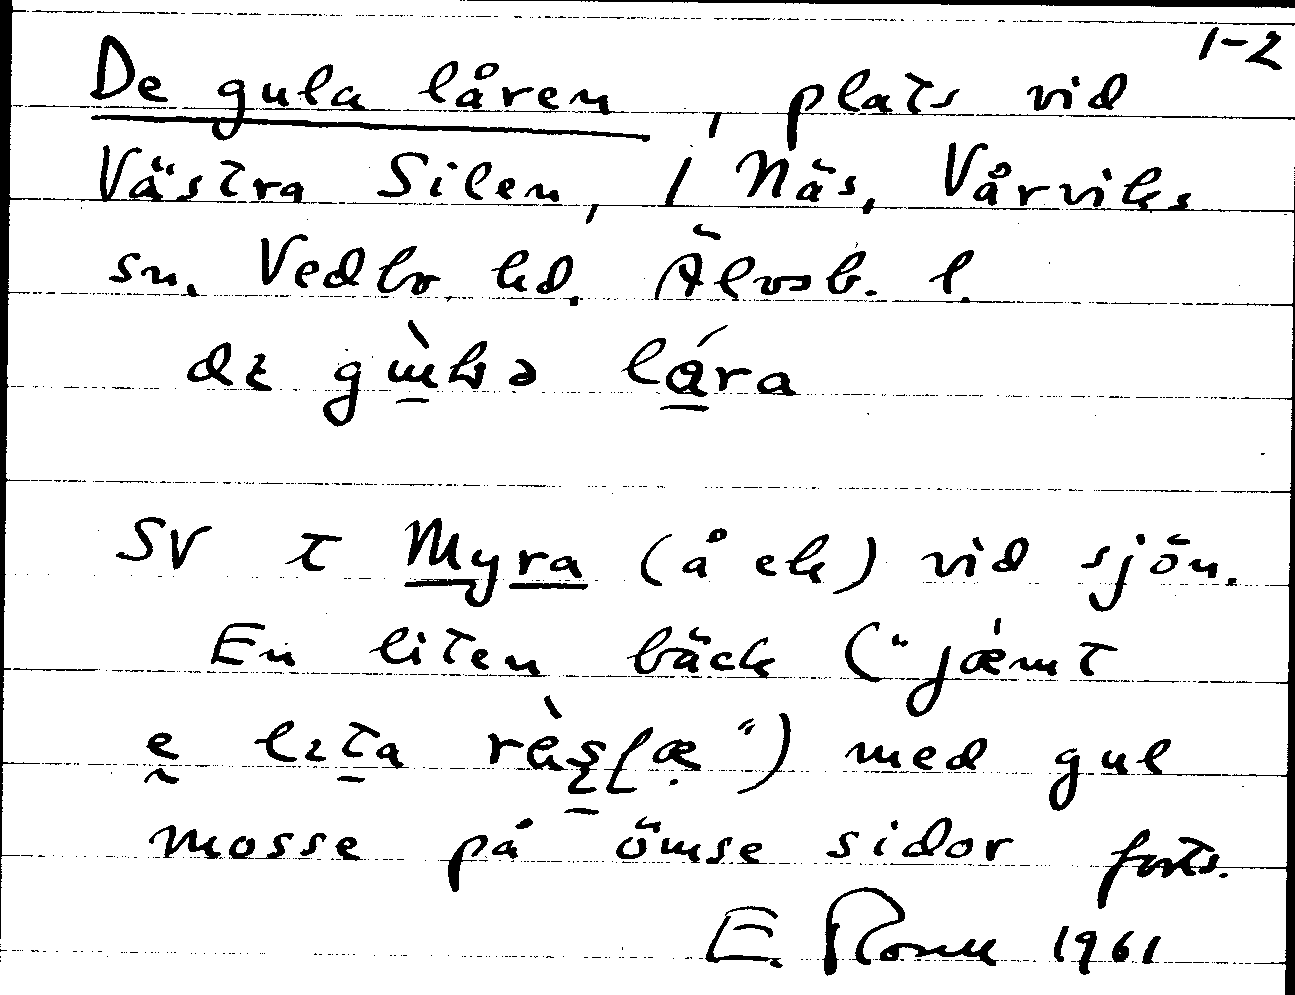 1-2
De gula låren, plats vid
Västra Silen, 1 Näs, Vårviks
sn. Vedbo hd. Älvsb. l.
lára
SV t Myra (å ek) vid sjön.
En liten bäck ("jæmt
e lɩta ) med gul
mosse på ömse sidor forts.
E. 1961